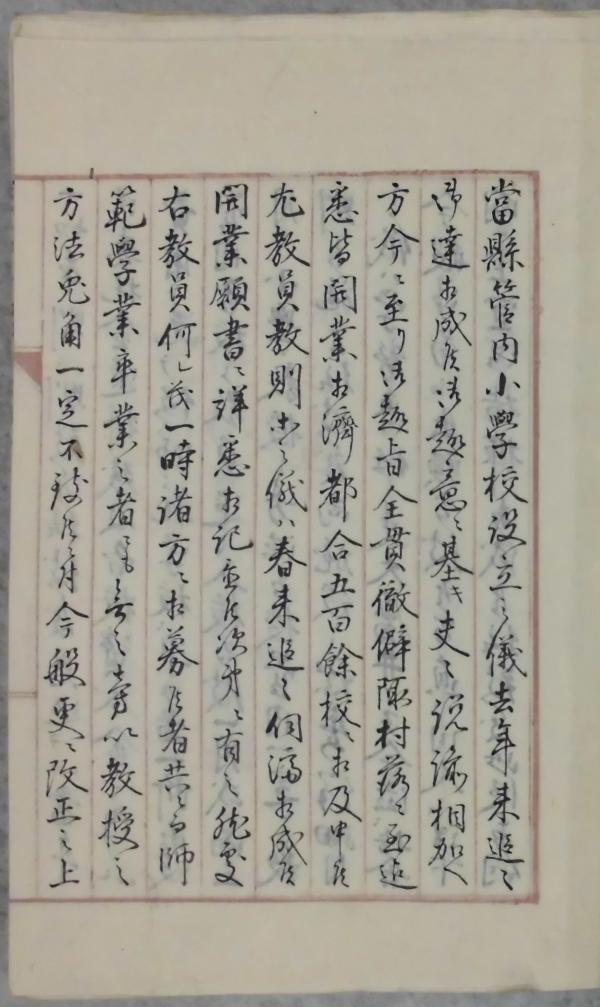 當縣管内小學校設立之儀去年来追々
御達相成候御趣意ニ基キ吏々説諭相加へ
方今ニ至り御趣旨全貫徹僻陬村落ニ至迄
悉皆開業相濟都合五百餘校ニ相及申候
尤教員教則等之儀ハ春来追々伺濟相成候
開業願書ニ詳悉相記置候次第ニ有之然處
右教員何レ茂一時諸方ニ相募候者共ニ而師
範學業卒業之者ニも無之旁以教授之
方法兎角一定不致候ニ付今般更ニ改正之上